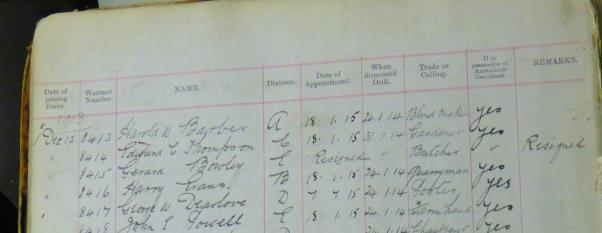 Date of joining Force. Warrant Number. NAME. Division. Date of Appointment. When dismissed Drill. Trade or Calling. If in possession of Ambulance Certificate. REMARKS.
1913
1 Dec 13 8413 Harold W Barber A 18. 1. 15 24.1.14 Blind mak yes
" 8414 Edward C Thompson C 18. 1. 15 31.1.14 Gardener yes
" 8415 Gerard Bowley C Resigned " Butcher " Resigned
" 8416 Harry Evans B 18. 1. 15 24.1.14 Quarryman yes
" 8417 George W Dearlove D 7. 7. 15 24.1.14 yes
8418 John E Powell E 18. 1. 15 24.1.14 yes